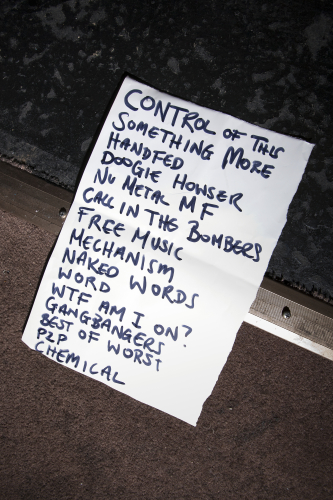 CONTROL OF THIS
SOMETHING MORE
HANDFED
DOOGIE HOWSER
NU METAL MF
CALL IN THE BOMBERS
FREE MUSIC
MECHANISM
NAKED WORDS
WORD
WTF AM I ON?
GANGBANGERS
BEST OF WORST
P2P
CHEMICAL